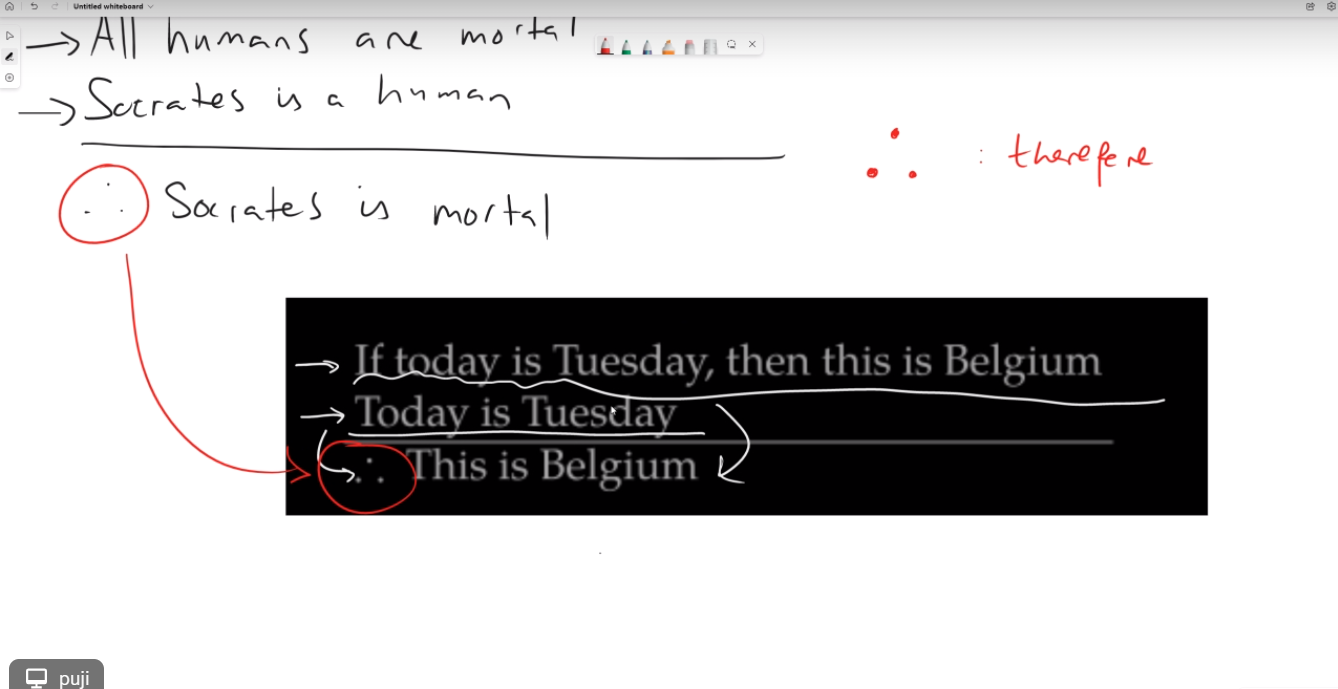 Untitled whiteboard
→ All humans are mortal
→ Socrates is a human
∴ Socrates is mortal
∴ : therefore
→ If today is Tuesday, then this is Belgium
→ Today is Tuesday
∴ This is Belgium
puji